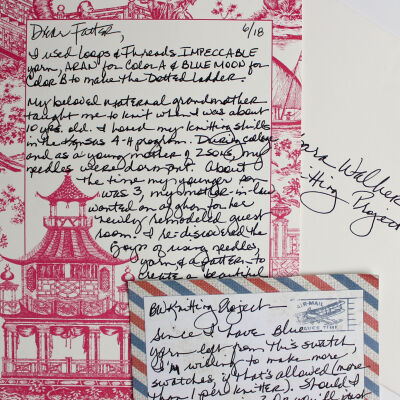 6/18
Dear Fatter,
I used Loops & Threads IMPECCABLE
yarn, ARAN for Color A & BLUE MOON for
Color B to make the Dotted Ladder.
My beloved maternal grandmother
taught me to knit when I was about
10 yrs. old. I honed my knitting skills
in the Kansas 4-H program. During college
and as a young mother of 2 sons, my
needles were dormant. About
the time my younger son
was 3, my mother-in-law
wanted an afghan for her
newly remodeled guest
room. I re-discovered the
joys of using needles,
yarn & a pattern to
create a beautiful
Walker
Knitting Project
BW Knitting Project
AIR-MAIL
SAVES TIME
Since I have Blue
yarn left from this swatch,
I'm willing to make more
swatches if that's allowed (more
than 1 per knitter). Should I